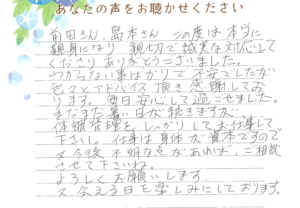 あなたの声をお聴かせください
前田さん、島本さん この度は本当に
親身になり 親切で誠実な対応して
くださり ありがとうございました。
わからない事ばかりで不安でしたが
色々とアドバイス頂き感謝してお
ります。毎日安心して過ごせました。
まだまだ暑い日が続きますが、
体調管理をしっかりしてお仕事して
下さい。仕事は身体が資本ですので
又 今後 不明な点があれば、ご相談
させて下さいね。
よろしくお願いします。
又 会える日を楽しみにしております。